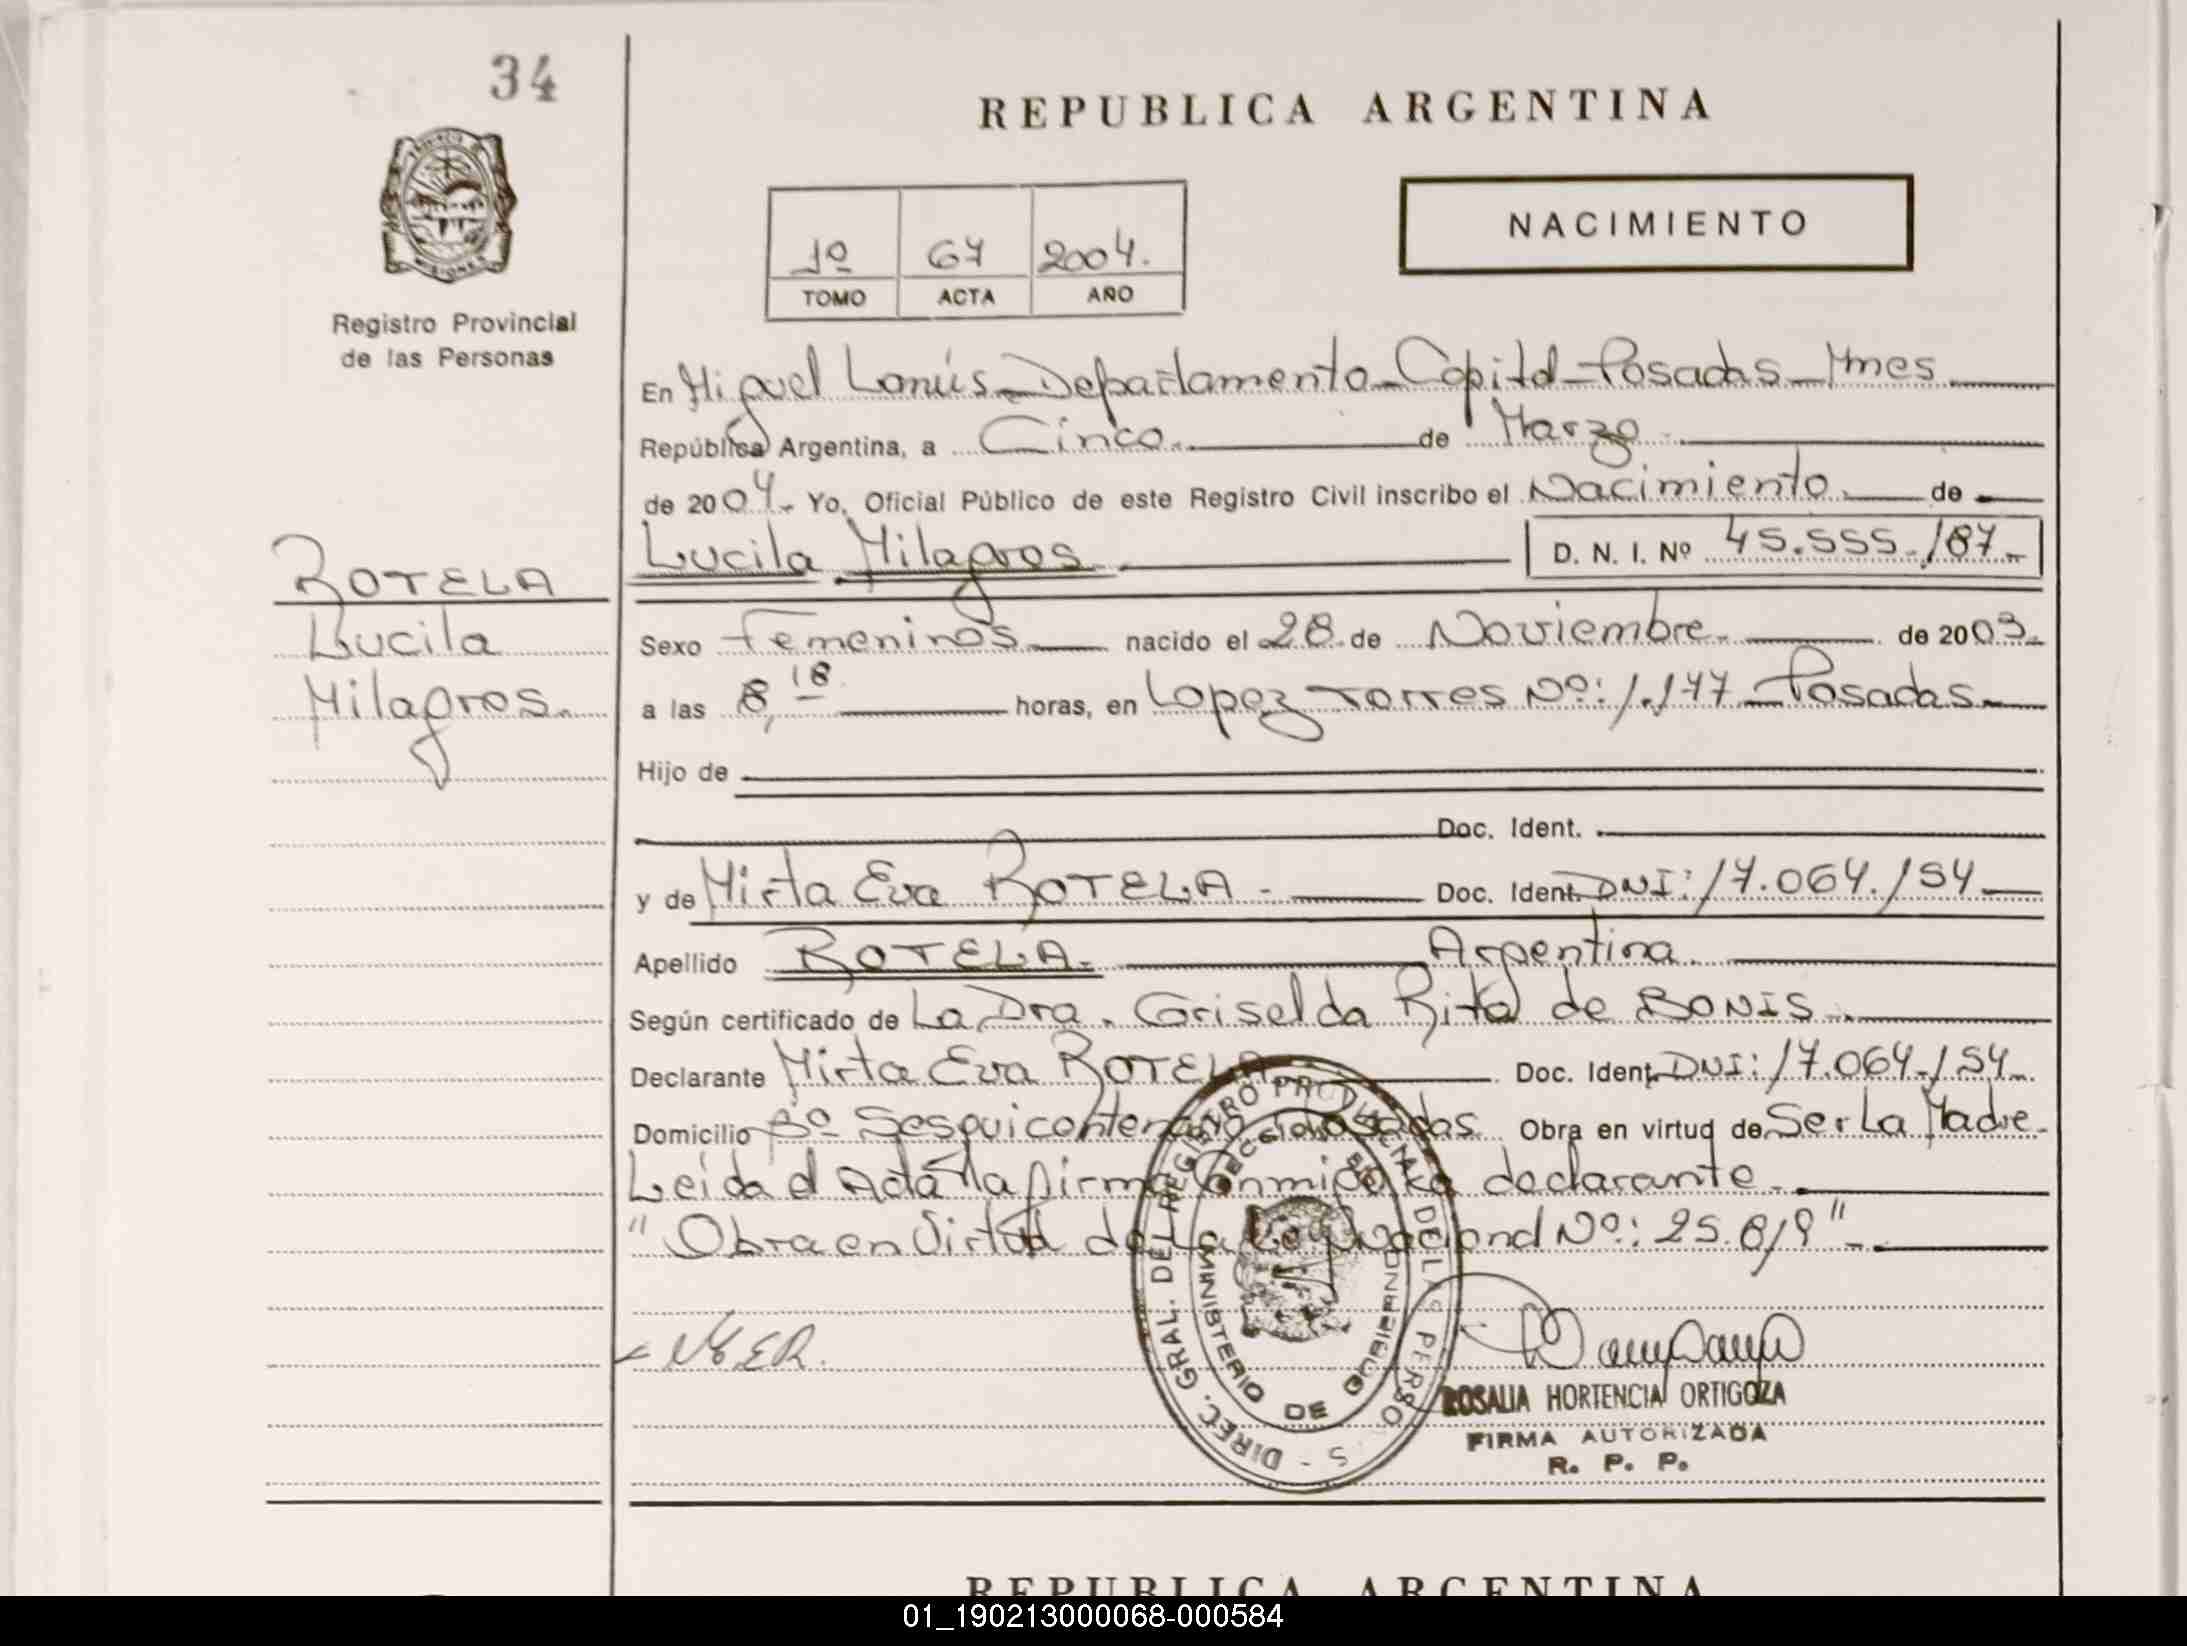 34
REPUBLICA ARGENTINA
NACIMIENTO
1º 67 2004.
TOMO ACTA AÑO
Registro Provincial
de las Personas
En Miguel Lanús - Departamento - Capital - Posadas - Mnes
República Argentina, a Cinco. de Marzo
de 2004. Yo, Oficial Público de este Registro Civil inscribo el Nacimiento. de
Lucila Milagros. D. N. I. Nº 45.555.187.
ROTELA
Lucila
Milagros.
Sexo Femeninos nacido el 28 de Noviembre. de 2003.
a las 8,18 horas, en Lopez Torres Nº: 1.177 - Posadas
Hijo de
Doc. Ident.
y de Mirta Eva ROTELA. Doc. Ident. DNI: 17.064.154
Apellido ROTELA. Argentina.
Según certificado de La Dra. Griselda Rita de BONIS.
Declarante Mirta Eva ROTELA Doc. Ident. DNI: 17.064.154.
Domicilio Bº Sesquicentenario Posadas Obra en virtud de Ser La Madre.
Leida el Acta la firma Conmigo La declarante.
"Obra en Virtud de La Ley Nacional Nº: 25.819".
DIREC. GRAL. DEL REGISTRO PROVINCIAL DE LAS PERSONAS
MINISTERIO DE GOBIERNO
ROSALIA HORTENCIA ORTIGOZA
FIRMA AUTORIZADA
R. P. P.
REPUBLICA ARGENTINA
01_190213000068-000584